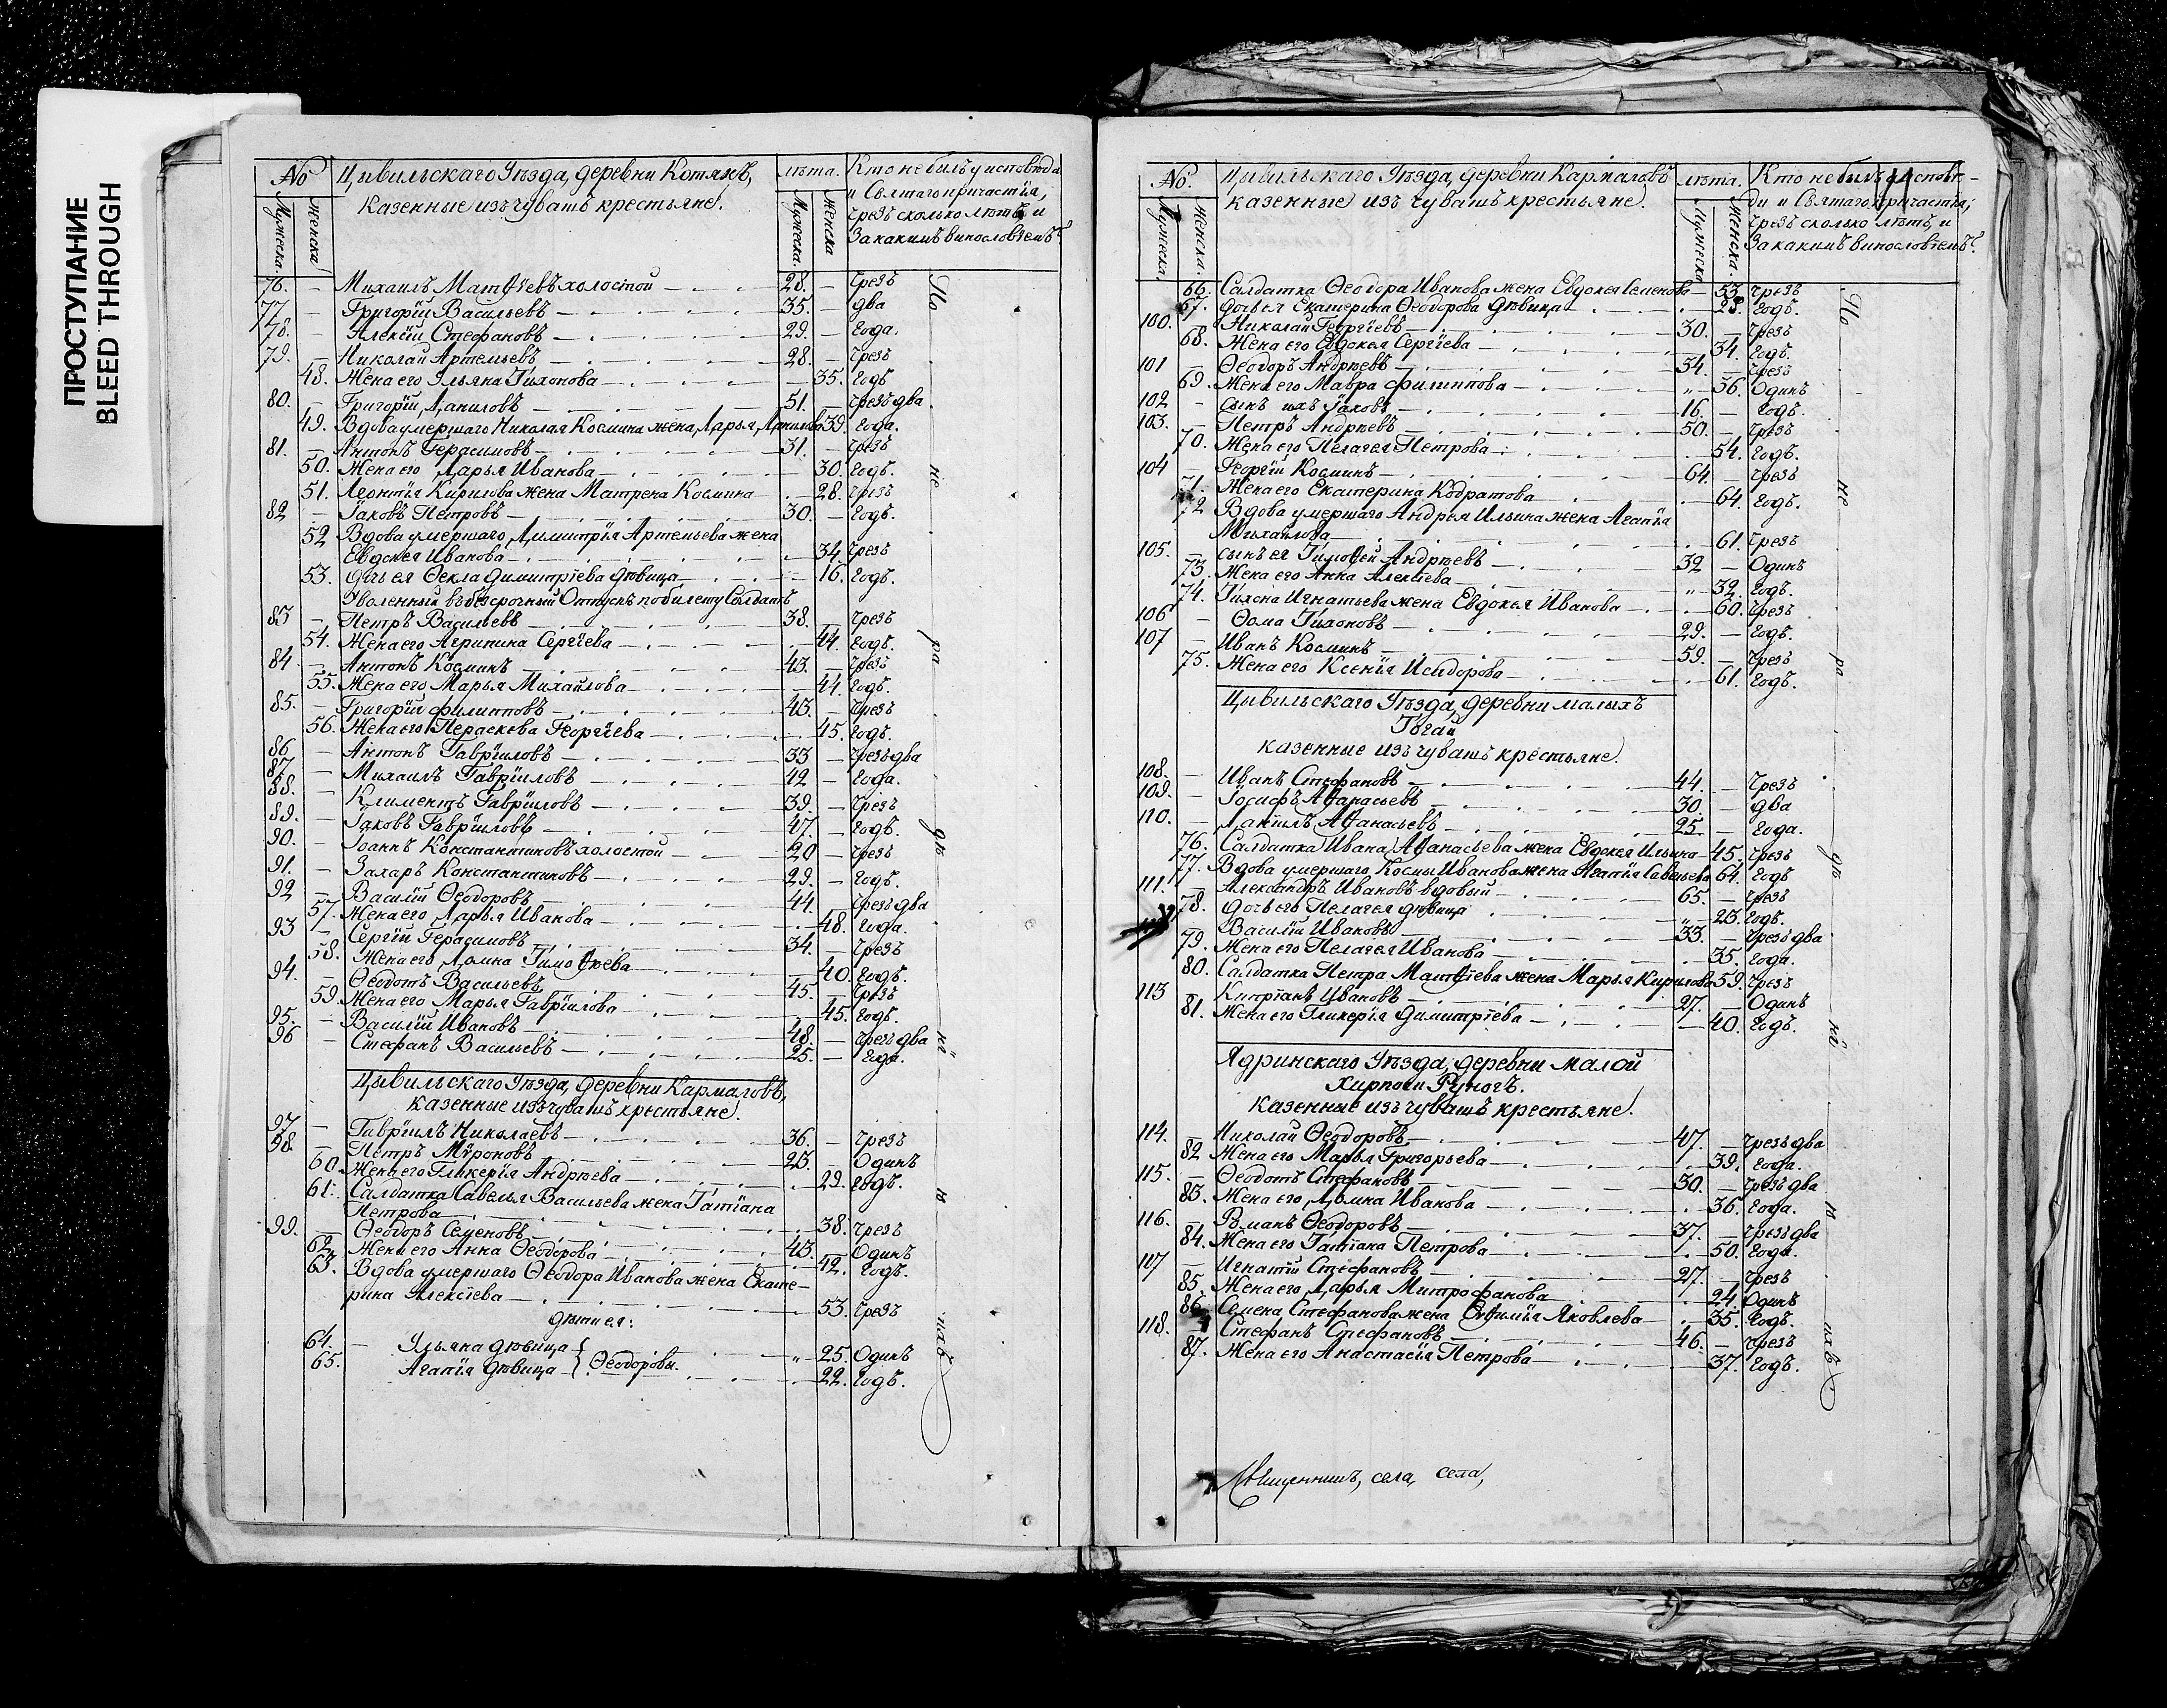 ПРОСТУПАНИЕ
BLEED THROUGH
No Цивильскаго Уѣзда, деревни Котякъ, лѣта. Кто не былъ у исповѣди
казенные изъ чувашъ крестьяне. и Святаго причастія,
Мужеска. Женска Мужеска. Женска чрезъ сколько лѣтъ, и
За какимъ винословіемъ?
76. — Михаилъ Матѳѣевъ холостой — 28. — чрезъ
77 — Григорій Васильевъ — 35. два
78. — Алексій Стефановъ — 29. — года.
79. — Николай Артемьевъ — 28. — чрезъ
48. Жена его Ульяна Тихонова — 35. годъ
80. — Григорій Даниловъ — 51. — чрезъ два
49. Вдова умершаго Николая Космина жена Дарья Данилова 39. года.
81. — Антонъ Герасимовъ — 31. — чрезъ
50. Жена его Дарья Иванова — 30. годъ.
51. Леонтія Кирилова жена Матрена Космина — 28. чрезъ
82 — Іаковъ Петровъ — 30. — годъ.
52 Вдова умершаго Димитрія Артемьева жена
Евдокея Иванова — 34. чрезъ
53. Дочь ея Ѳекла Димитріева дѣвица — 16. годъ.
Уволенный въ безсрочный Отпускъ по билету Солдатъ
83 — Петръ Васильевъ — 38. — чрезъ
54. Жена его Агрипина Сергѣева — 44. годъ.
84 — Антонъ Косминъ — 43. — чрезъ
55. Жена его Марья Михайлова — 44. годъ.
85. — Григорій Филипповъ — 43. — чрезъ
56. Жена его Пераскева Георгіева — 45. годъ.
86 — Антонъ Гавріиловъ — 33 — чрезъ два
87. — Михаилъ Гавріиловъ — 42 — года.
88. — Климентъ Гавріиловъ — 39. — чрезъ
89. — Іаковъ Гавріиловъ — 47. — годъ.
90. — Іоаннъ Константиновъ холостой — 20 — чрезъ
91. — Захаръ Константиновъ — 29. — годъ.
92 — Василій Ѳеодоровъ — 44. чрезъ два
57. Жена его Дарья Иванова — 48. года.
93 — Сергій Герасимовъ — 34. — чрезъ
58. Жена его Домна Тимоѳѣева — 40. годъ.
94. — Ѳеодотъ Васильевъ — 45. — чрезъ
59. Жена его Марья Гавріилова — 45. годъ.
95. — Василій Ивановъ — 48. — чрезъ два
96 — Стефанъ Васильевъ — 25. — года.
Цывильскаго Уѣзда, деревни Кармаловъ,
казенные изъ чувашъ крестьяне.
97 — Гавріилъ Николаевъ — 36. — чрезъ
98. — Петръ Мѵроновъ — 23. Одинъ
60. Жена его Гликерія Андрѣева — 29. годъ.
61. Салдатка Савелья Васильева жена Татіана
Петрова — 38. чрезъ
99. — Ѳеодоръ Семеновъ — 43. — Одинъ
62. Жена его Анна Ѳеодорова — 42. годъ.
63. Вдова умершаго Ѳеодора Иванова жена Екате-
рина Алексіева — 53. чрезъ
дѣти ея:
64. — Ульяна дѣвица — 25. Одинъ
65. Агапія дѣвица } Ѳеодоровы. — 22. годъ.
По не ра дѣ нї ю ихъ
No. Цивильскаго Уѣзда, деревни Кармаловъ лѣта. Кто не былъ у исповѣ-
казенные изъ чувашъ крестьяне. ди и Святаго причастія;
Мужеска. Женска. Мужеска. Женска. чрезъ сколько лѣтъ, и
За какимъ винословіемъ?
66. Салдатка Ѳеодора Иванова жена Евдокея Семенова — 53. чрезъ
67. дочь ея Екатерина Ѳеодорова дѣвица — 23. годъ.
100. — Николай Георгіевъ — 30. — чрезъ
68. Жена его Евдокея Сергіева — 34. годъ.
101 — Ѳеодоръ Андрѣевъ — 34. — чрезъ
69. Жена его Мавра Филиппова — 36. Одинъ
102 — сынъ ихъ Іаковъ — 16. — годъ.
103. — Петръ Андрѣевъ — 50. — чрезъ
70. Жена его Пелагея Петрова — 54. годъ.
104 — Георгій Косминъ — 64. чрезъ
71. Жена его Екатерина Кодратова — 64. годъ.
72 Вдова умершаго Андрея Ильина жена Агапія
Михайлова — 61. чрезъ
105. — сынъ ея Тимоѳей Андрѣевъ — 32 — Одинъ
73. Жена его Анна Алексіева — 32. годъ.
74. Тихона Игнатьева жена Евдокея Иванова — 60. чрезъ
106 — Ѳома Тихоновъ — 29. — годъ.
107 — Иванъ Косминъ — 59. — чрезъ
75. Жена его Ксенія Исидорова — 61. годъ.
Цивильскаго Уѣзда, деревни малыхъ
Тогай
казенные изъ чувашъ крестьяне.
108. — Иванъ Стефановъ — 44. — чрезъ
109. — Іосифъ Аѳанасьевъ — 30. — два
110. — Даніилъ Аѳанасьевъ — 25 — года.
76. Салдатка Ивана Аѳанасьева жена Евдокея Ильина — 45. чрезъ
77. Вдова умершаго Космы Иванова жена Агапія Савельева 64. годъ
111. — Александръ Ивановъ вдовый — 65. — чрезъ
78. дочь его Пелагея дѣвица — 23. годъ.
Василій Ивановъ — 33. — чрезъ два
79. Жена его Пелагея Иванова — 35. года.
80. Салдатка Петра Матѳѣева жена Марья Кирилова 59. чрезъ
113 Кипріанъ Ивановъ — 27. — Одинъ
81. Жена его Гликерія Димитріева — 40. годъ.
Ядринскаго Уѣзда, деревни малой
казенные изъ чувашъ крестьяне.
114. — Николай Ѳеодоровъ — 47. — чрезъ два
82 Жена его Марья Григорьева — 39. года.
115. — Ѳеодотъ Стефановъ — 30. — чрезъ два
83. Жена его Домна Иванова — 36. года.
116. — Романъ Ѳеодоровъ — 37. — чрезъ два
84. Жена его Татіана Петрова — 50. года.
107 — Игнатій Стефановъ — 27. — чрезъ
85. Жена его Дарья Митрофанова — 24. Одинъ
86. Семена Стефанова жена Евѳимія Яковлева — 35. годъ.
118. Стефанъ Стефановъ — 46. — чрезъ
87. Жена его Анастасія Петрова — 37. годъ.
По не ра дѣ нї ю ихъ
Священникъ, села, села,